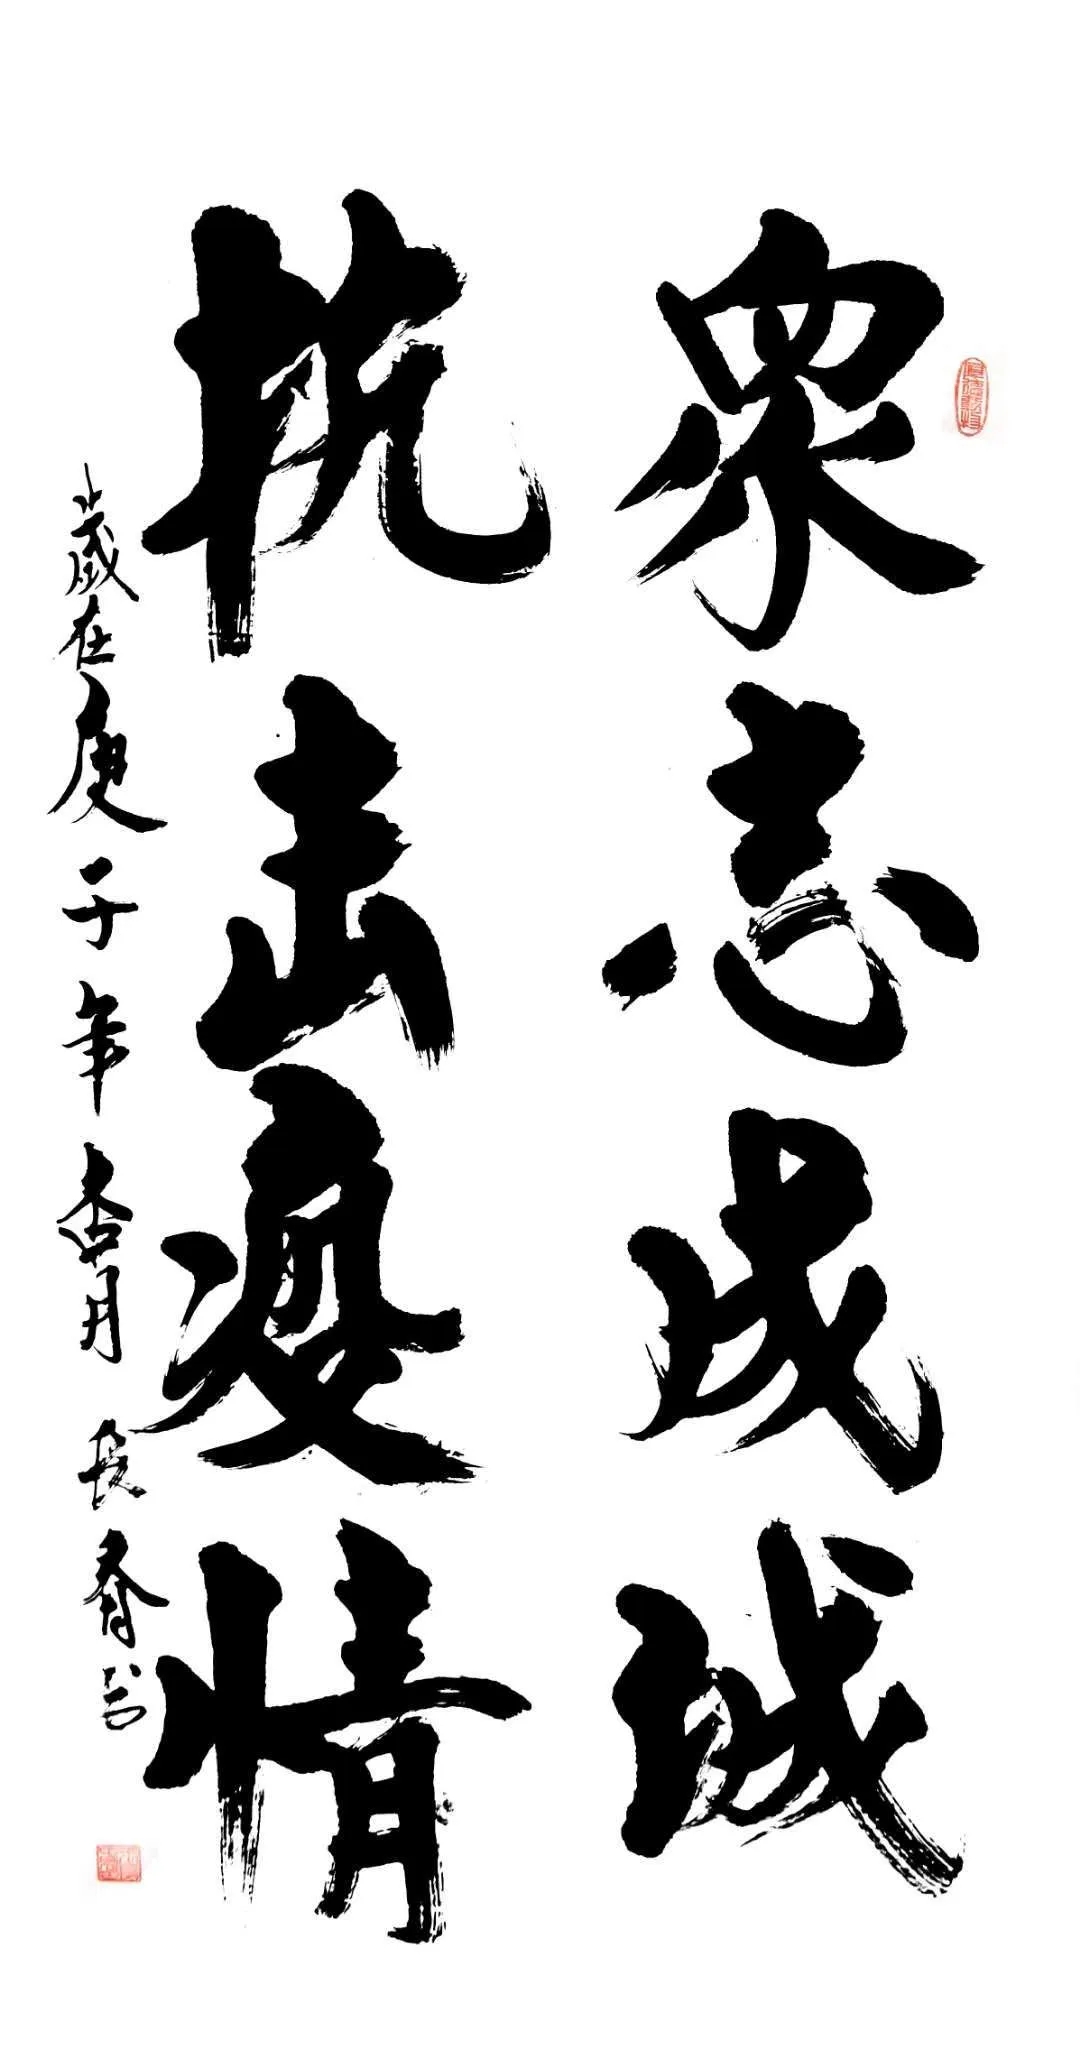 眾志成城
抗击疫情
歲在庚子年杏月長春书